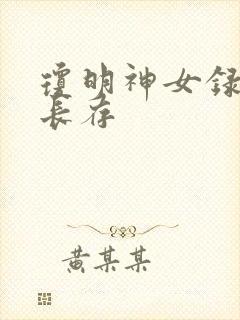 瓊明神女録
長存
黄某某